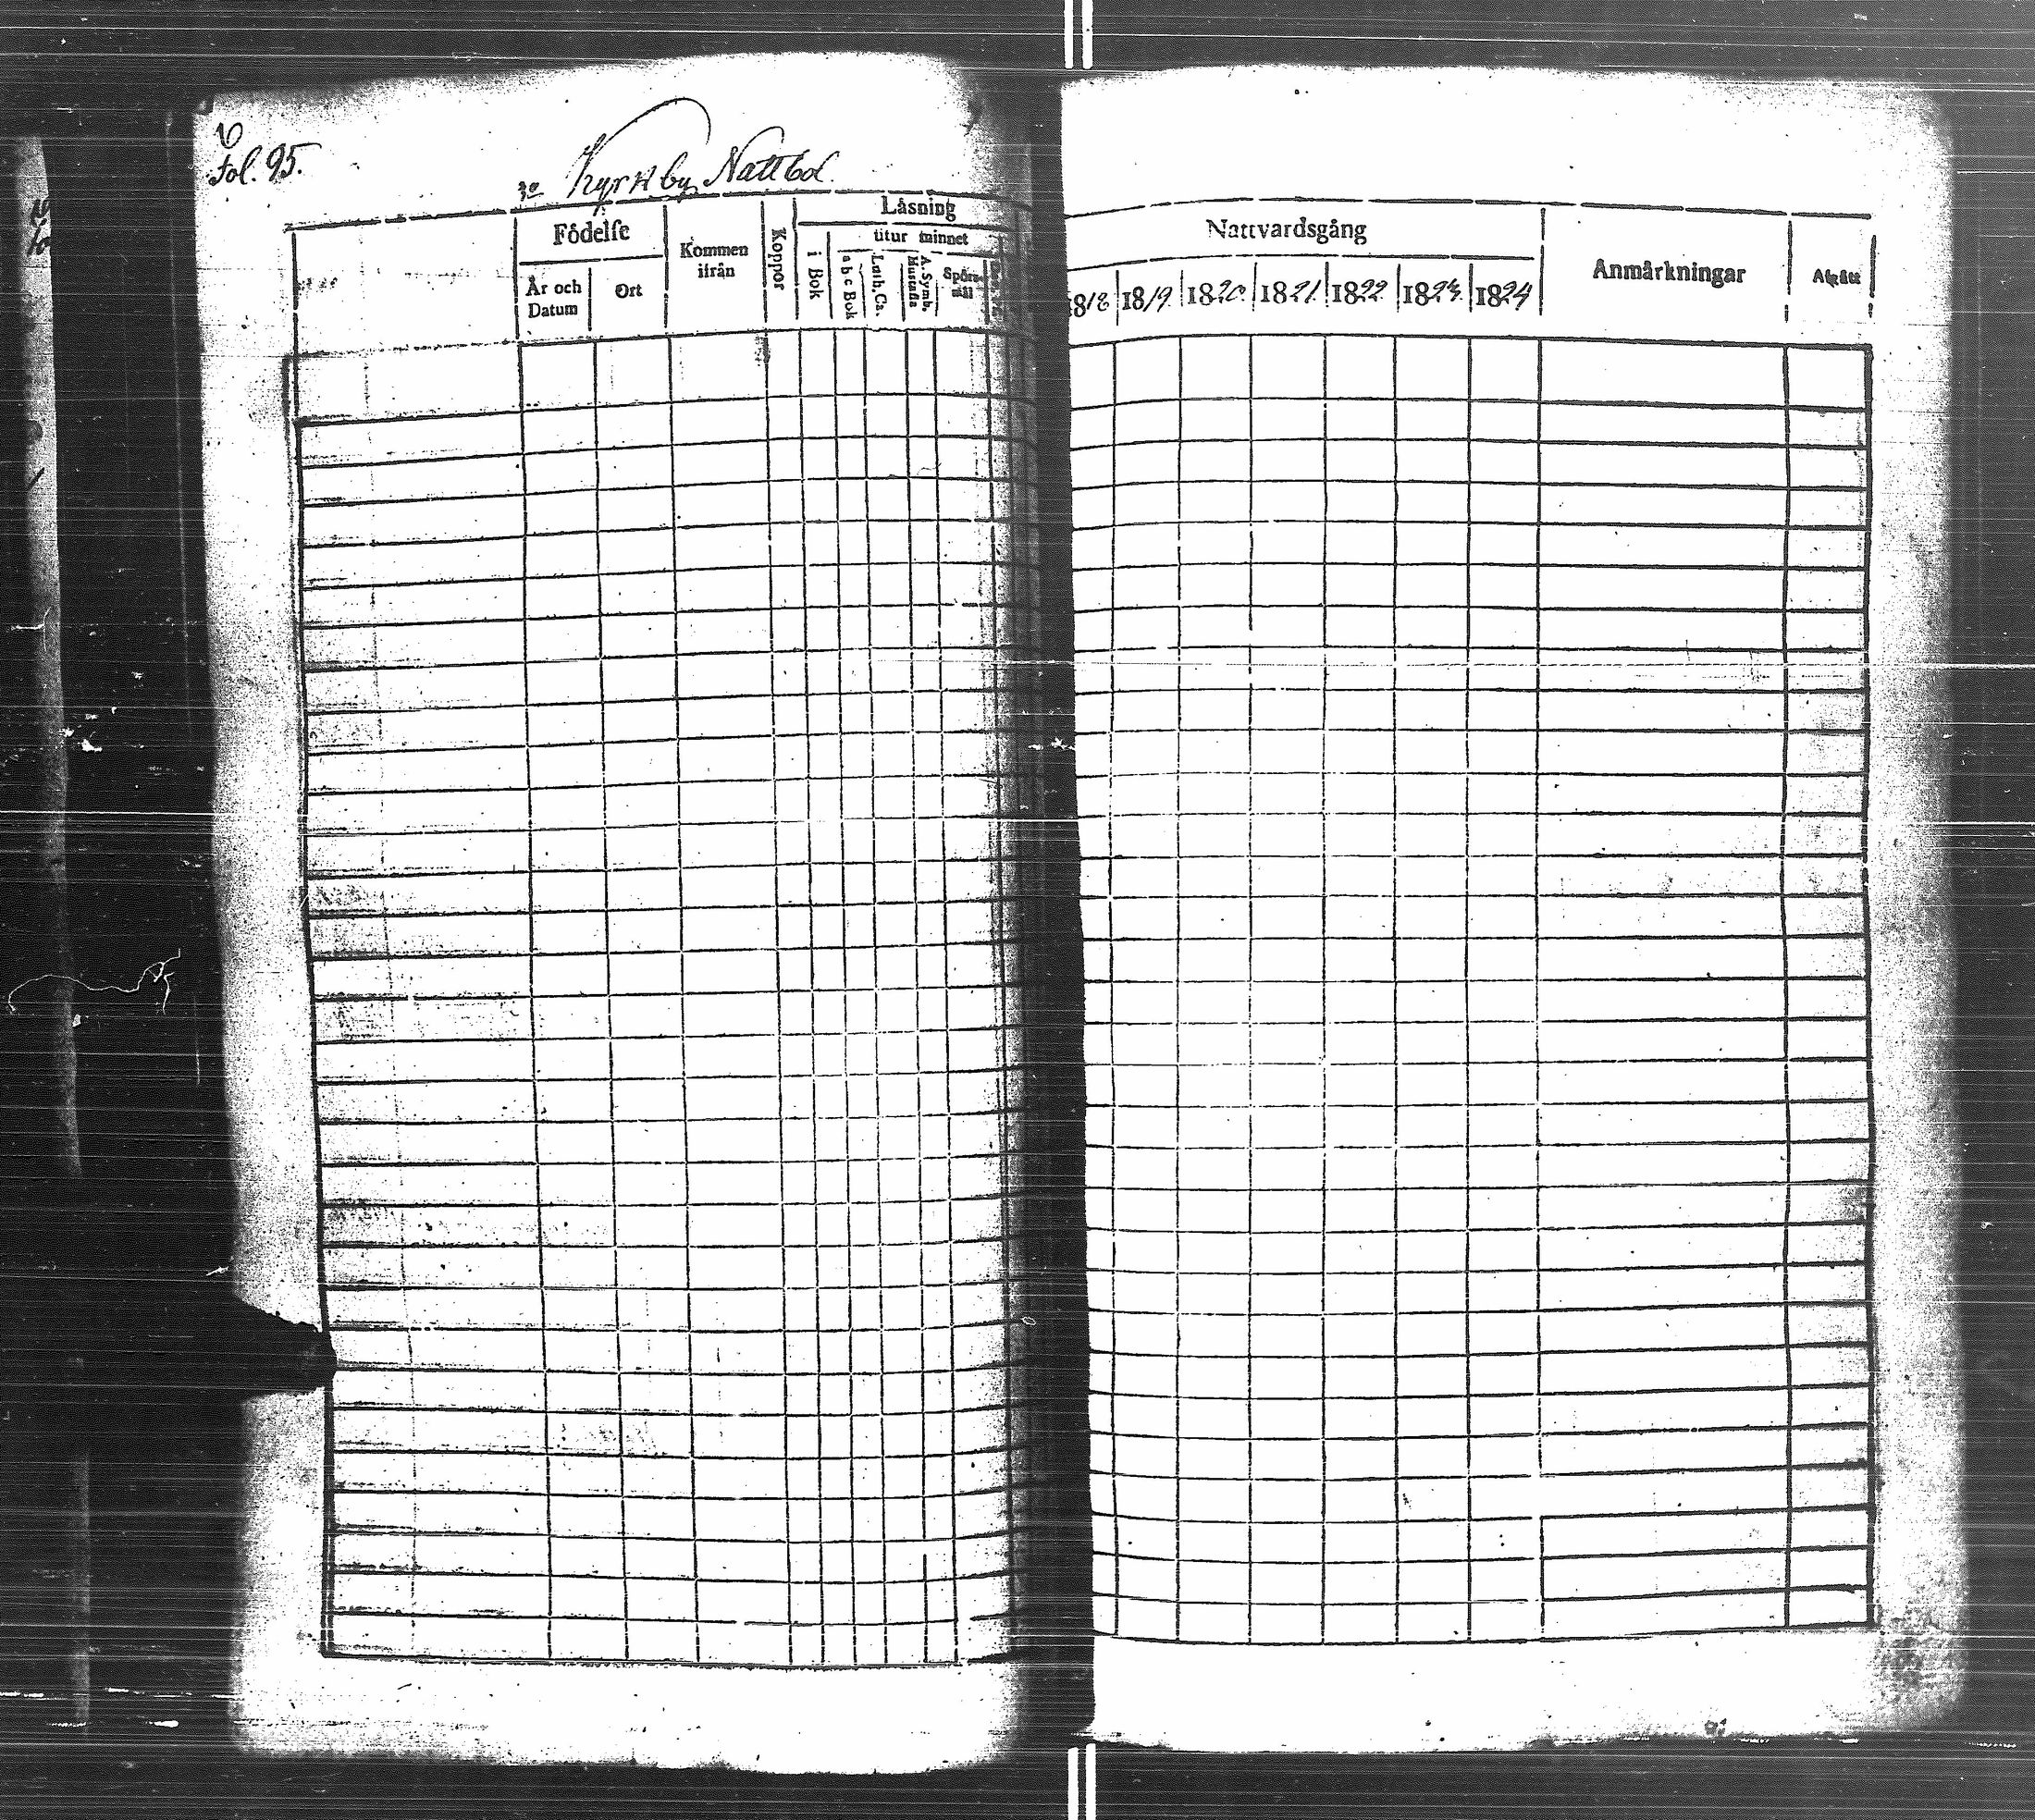 Fol. 95.
Kyrkby Nattbol
Födelse
År och Datum
Ort
Kommen ifrån
Koppor
Läsning
i Bok
utur minnet
a b c Bok
Luth. Ca.
A. Symb. Hustafla
Spörsmål
Nattvardsgång
1819 1820 1821 1822 1823 1824
Anmärkningar